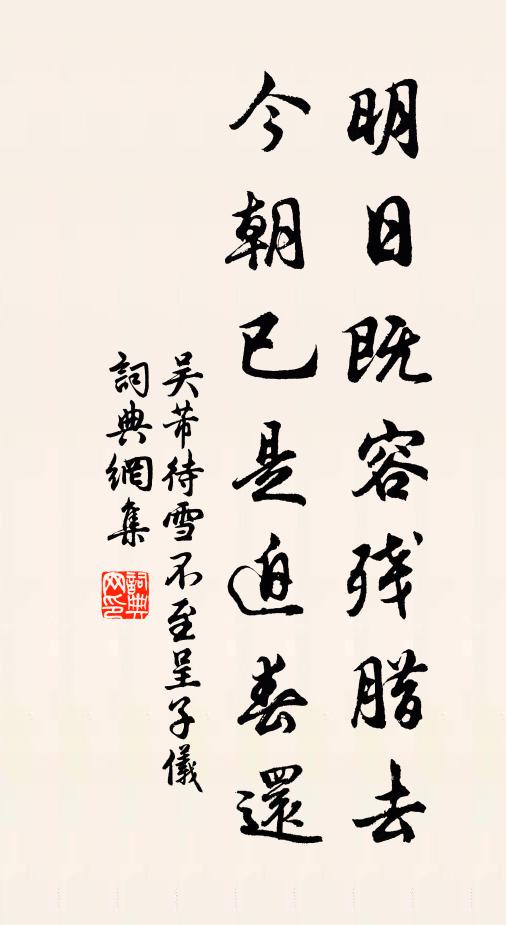 明日既容残腊去
今朝已是迫春還
吴芾待雪不至呈子儀
詞典網集
詞典网印